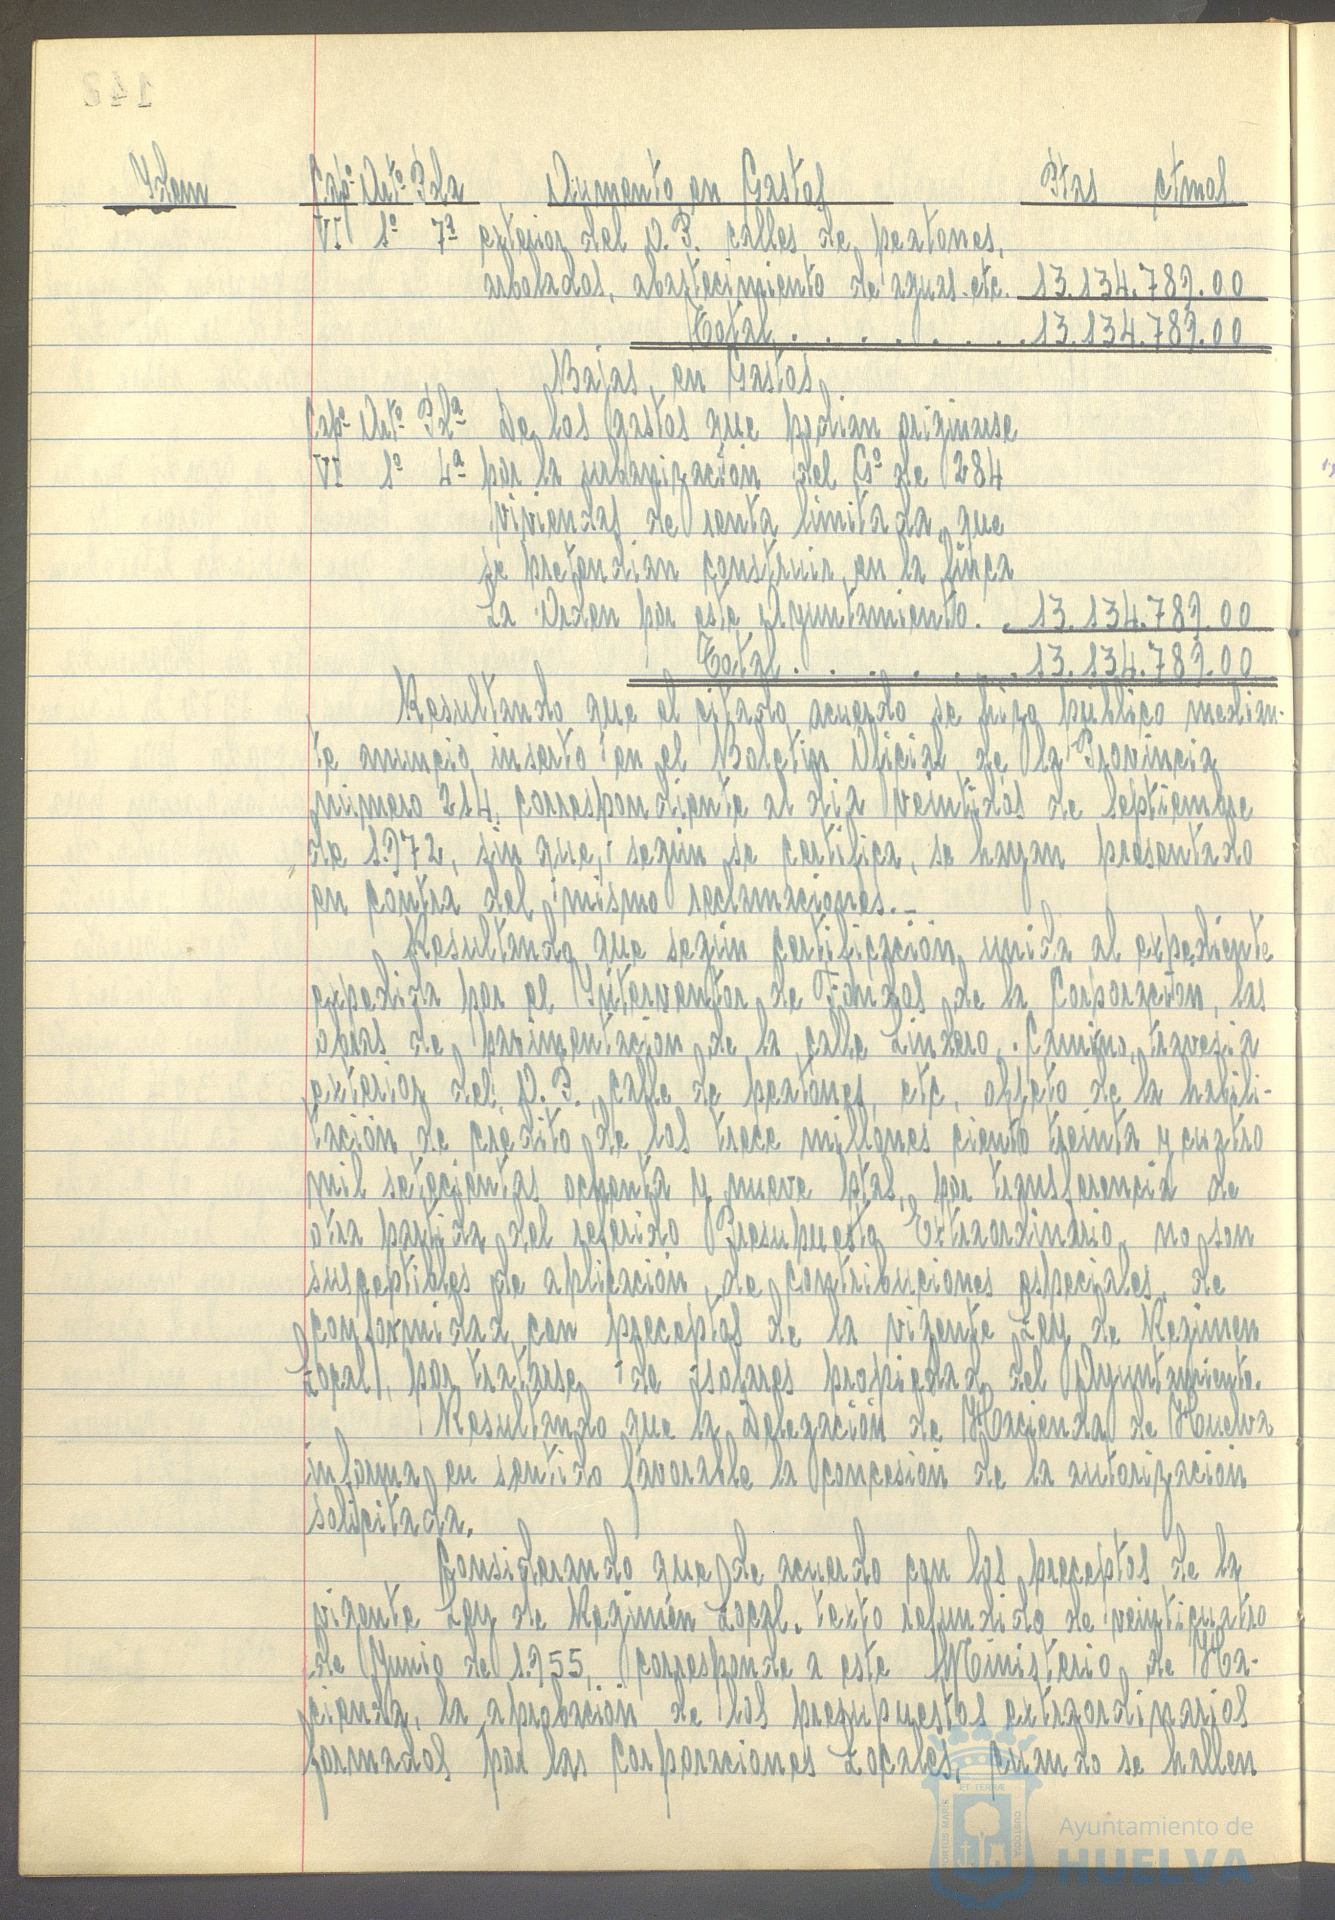 Idem Cap.º Art.º Pda Aumento en Gastos Ptas ctmos
VI 1º 7ª exterior del D.P. calles de peatones,
arbolados, abastecimiento de aguas. etc. 13.134.789.00
Total . . . . . . . . 13.134.789.00
Bajas en Gastos
Capº Artº Pdª De los gastos que podian originarse
VI 1º 4ª por la urbanización del Gº de 284
viviendas de renta limitada, que
se pretendian construir, en la finca
La Orden por este Ayuntamiento. . 13.134.789.00
Total . . . . . . . 13.134.789.00
Resultando que el citado acuerdo se hizo público median-
te anuncio inserto en el Boletin Oficial de la Provincia
número 214, correspondiente al dia veintidos de septiembre
de 1.972, sin que, segun se certifica, se hayan presentado
en contra del mismo reclamaciones.-
Resultando que según certificación unida al expediente
expedida por el Interventor de Fondos de la Corporación, las
obras de pavimentación de la calle Lindero, Camino, travesia
exterior del D.P., calle de peatones, etc, objeto de la habili-
tación de credito de los trece millones ciento treinta y cuatro
mil setecientas ochenta y nueve ptas, por transferencia de
otra partida del referido Presupuesto Extraordinario, no son
susceptibles de aplicación de contribuciones especiales, de
conformidad con preceptos de la vigente Ley de Regimen
Local, por tratarse de solares propiedad del Ayuntamiento.
Resultando que la Delegación de Hacienda de Huelva
informa en sentido favorable la concesión de la autorización
solicitada.
Considerando que de acuerdo con los preceptos de la
vigente Ley de Regimen Local. texto refundido de veinticuatro
de Junio de 1.955, corresponde a este Ministerio de Ha-
cienda, la aprobación de los presupuestos extraordinarios
formados por las Corporaciones Locales, cuando se hallen
Ayuntamiento de
HUELVA